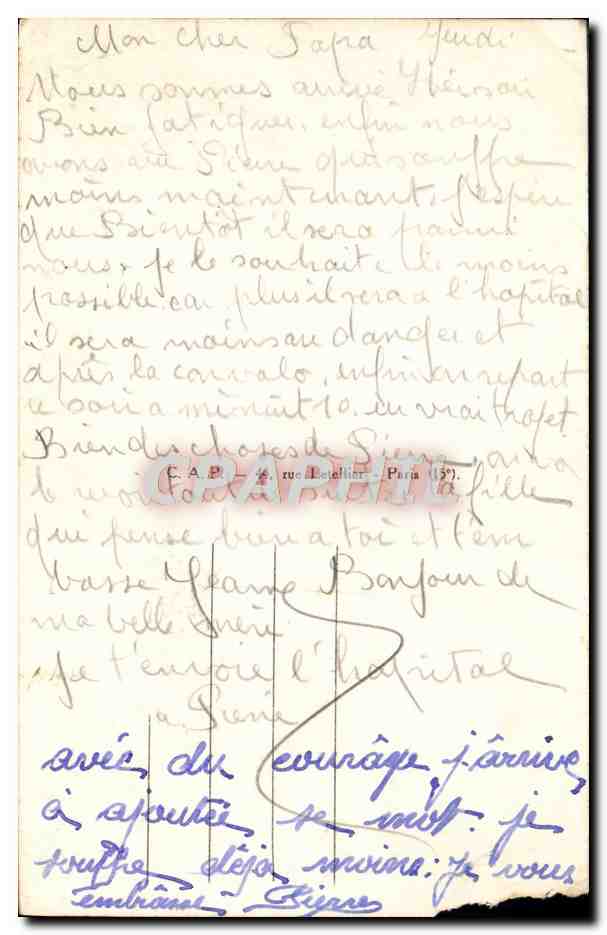 Mon Cher Papa Jeudi
Nous sommes arrivé
Bien fatiguer, enfin nous
avons vu Pierre qui souffre
moins maintenant. J'espère
que Bientôt il sera parmi
nous, je le souhaite le moins
possible car plus il sera a l'hopital
il sera moins au danger et
après la convalo, enfin on repart
ce soir a minuit 10. un vrai trajet
Bien des choses de Pierre,
C. A. P. — 46, rue Letellier - Paris (15e).
CARAPHIL
fille
qui pense bien a toi et t'em
brasse Jeanne Bonjour de
ma belle mère
Je t'envoie l'hopital
a Pierre
avéc du courâge j'ârrive
à ajoutée se môt. je
souffre déja moins. Je vous
embrâsse Pierre